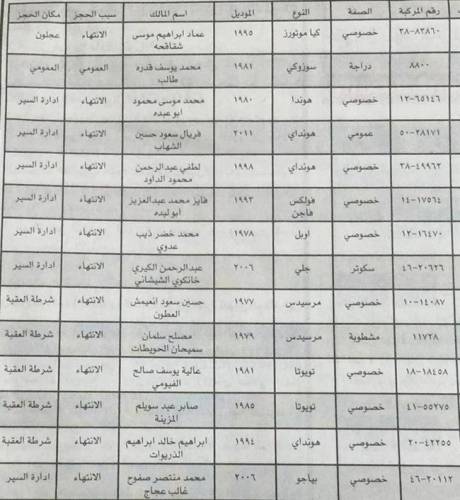 رقم المركبة الصفة النوع الموديل اسم المالك سبب الحجز مكان الحجز
٣٨-٨٣٨٦٠ خصوصي كيا موتورز ١٩٩٥ عماد ابراهيم موسى شقاقحه الانتهاء عجلون
٨٨٠٠ دراجة سوزوكي ١٩٨٤ محمد يوسف قدره طالب العمومي العمومي
١٢-٦٥١٤٦ خصوصي هوندا ١٩٨٠ محمد موسى محمود ابو عبده الانتهاء ادارة السير
٥٠-٢٨١٧١ عمومي هونداي ٢٠١١ فريال سعود حسين الشهاب الانتهاء ادارة السير
٣٨-٤٩٩٦٢ خصوصي هونداي ١٩٩٨ لطفي عبدالرحمن محمود الداود الانتهاء ادارة السير
١٤-١٧٥٦٤ خصوصي فولكس فاجن ١٩٩٣ فايز محمد عبدالعزيز ابولبده الانتهاء ادارة السير
١٢-١٦٤٧٠ خصوصي اوبل ١٩٧٨ محمد خضر ذيب عدوي الانتهاء ادارة السير
٤٦-٢٠٦٢٦ سكوتر جلي ٢٠٠٦ عبدالرحمن الكيري خانكوي الشيشاني الانتهاء ادارة السير
١٠-١٤٠٨٧ خصوصي مرسيدس ١٩٧٧ حسين سعود انعيمش العطون الانتهاء شرطة العقبة
١١٧٢٨ مشطوبة مرسيدس ١٩٧٩ مصلح سلمان سميحان الحويطات الانتهاء شرطة العقبة
١٨-١٨٤٥٨ خصوصي تويوتا ١٩٨١ عالية يوسف صالح الفيومي الانتهاء شرطة العقبة
٤١-٥٥٢٧٥ خصوصي تويوتا ١٩٨٥ صابر عيد سويلم المزينة الانتهاء شرطة العقبة
٢٠-٤٢٢٥٥ خصوصي هونداي ١٩٩٤ ابراهيم خالد ابراهيم الذريوات الانتهاء شرطة العقبة
٤٦-٢٠١١٢ خصوصي بيهاجو ٢٠٠٦ محمد منتصر صفوح غالب عجاج الانتهاء ادارة السير